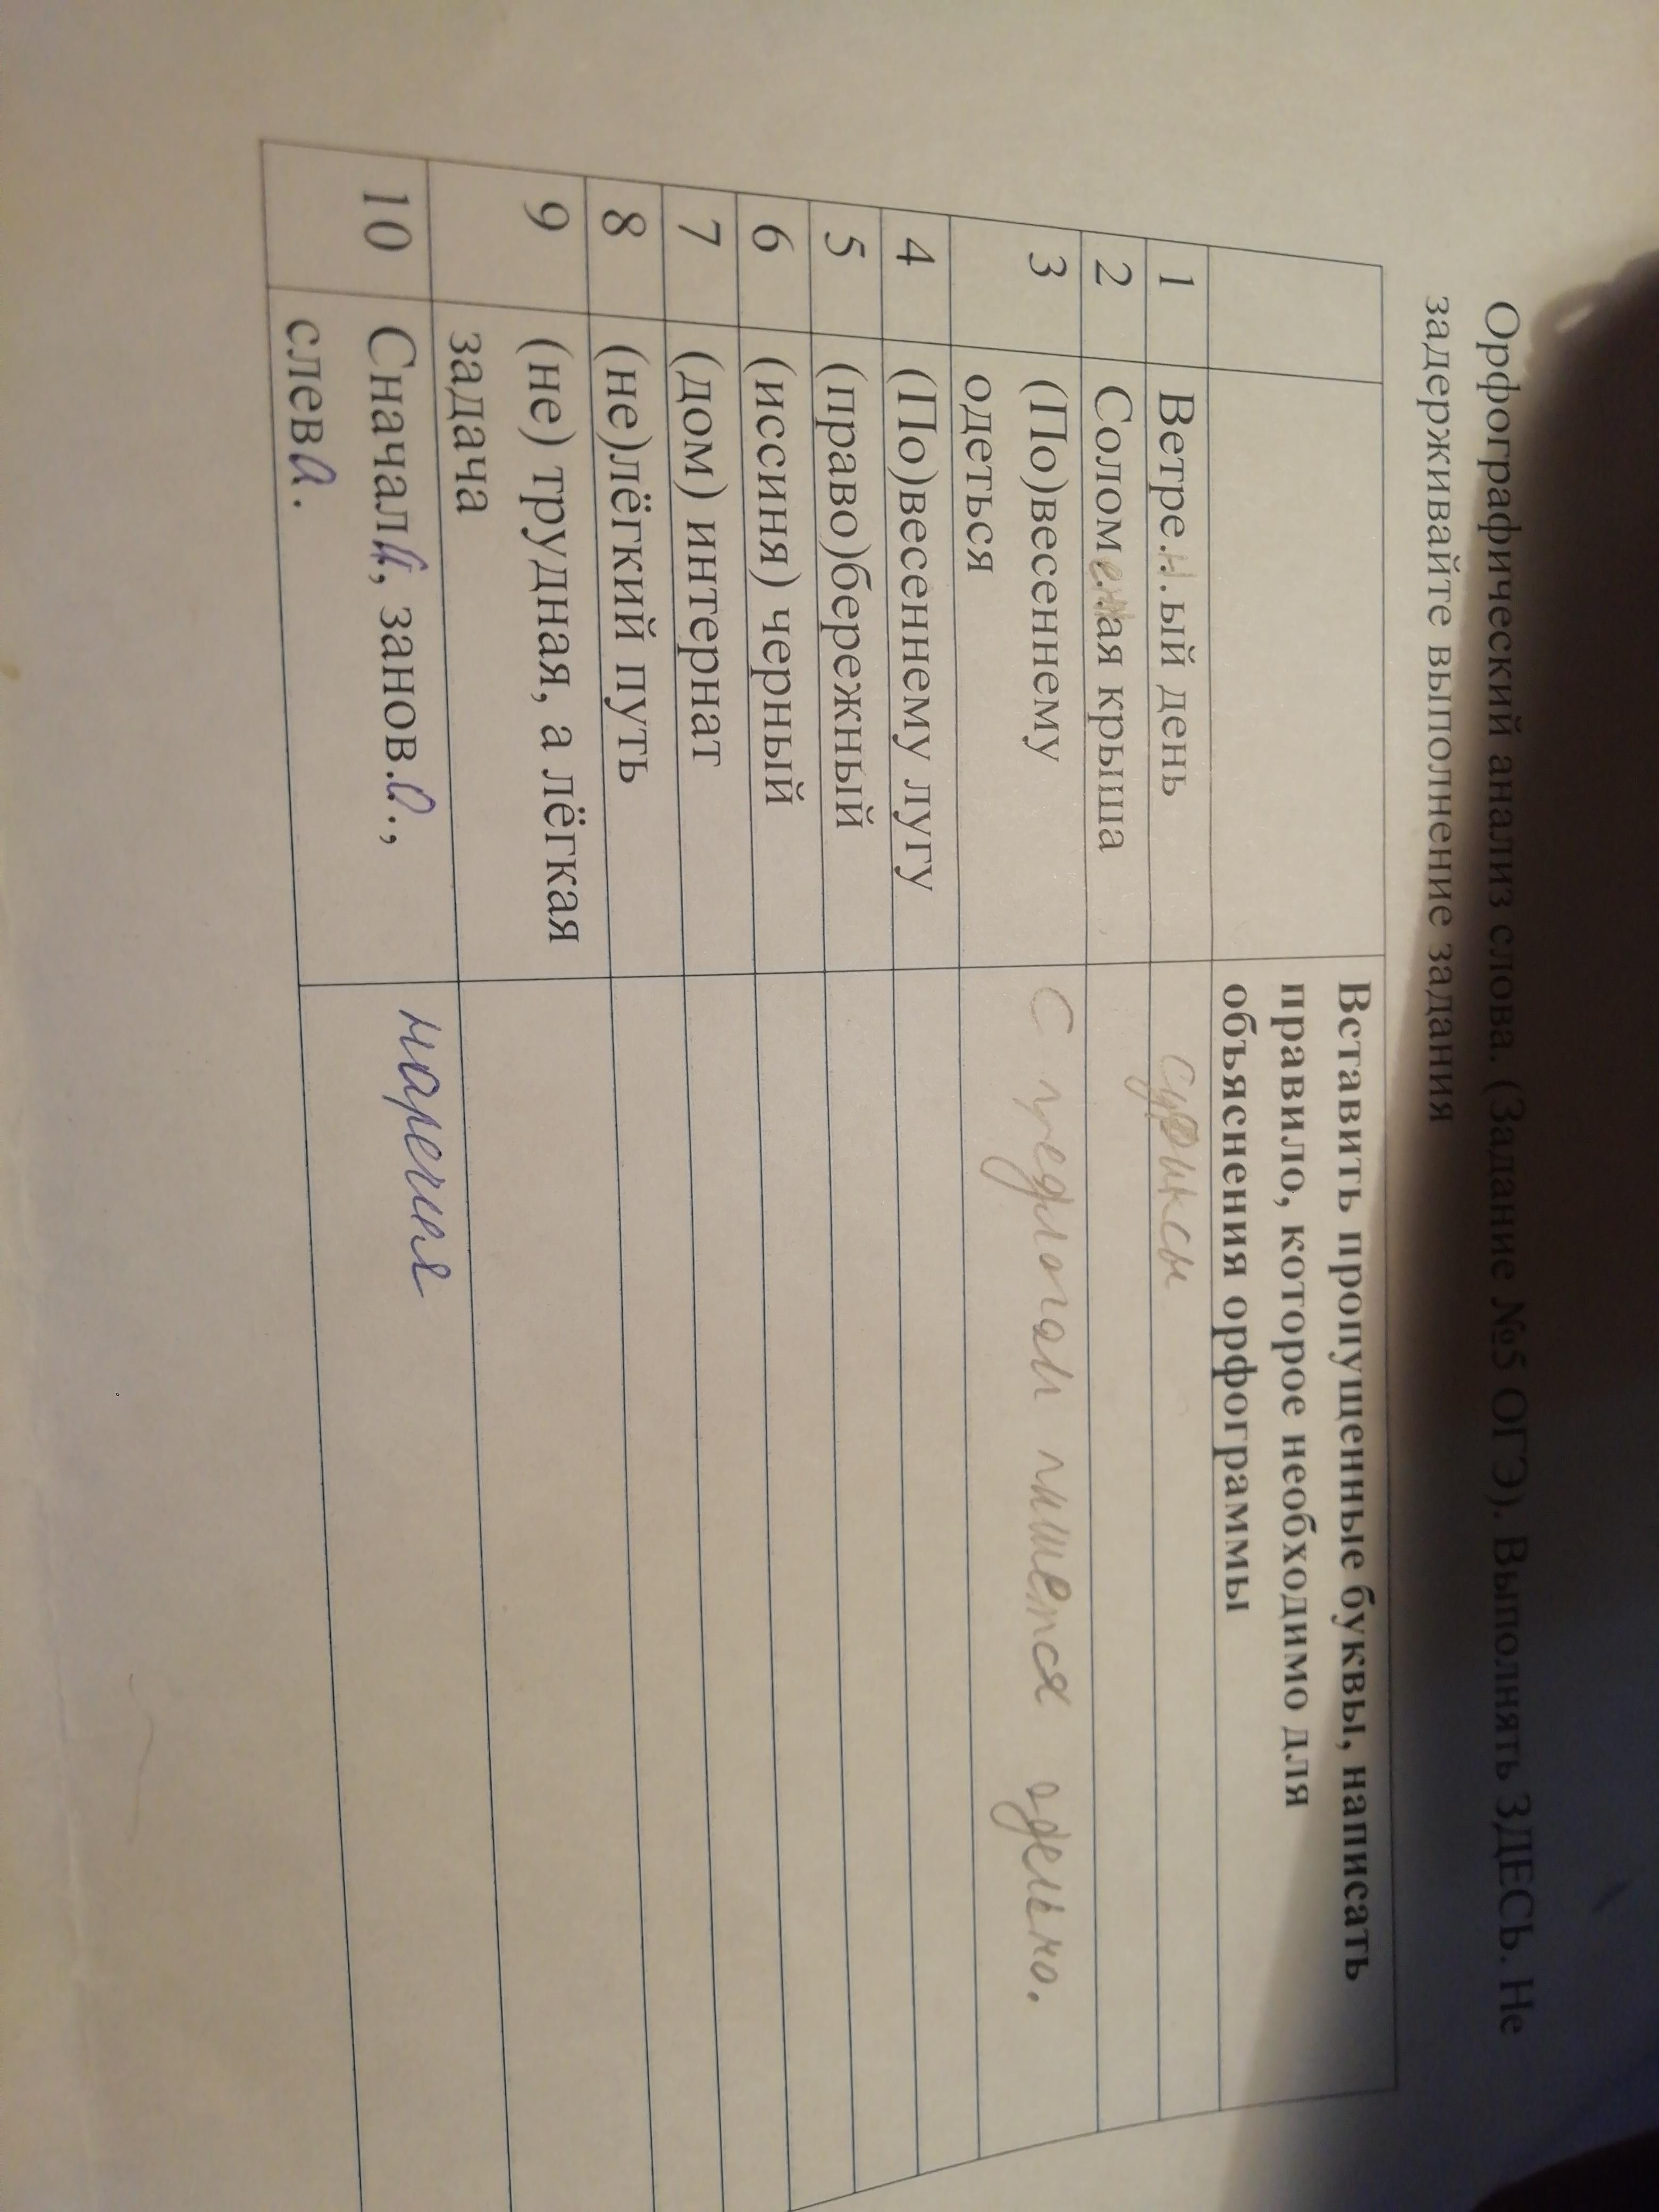 Орфографический анализ слова. (Задание №5 ОГЭ). Выполнять ЗДЕСЬ. Не
задерживайте выполнение задания
Вставить пропущенные буквы, написать
правило, которое необходимо для
объяснения орфограммы
1 Ветре.н.ый день суфиксы
2 Соломеная крыша
3 (По)весеннему С предлогам пишется одельно.
одеться
4 (По)весеннему лугу
5 (право)бережный
6 (иссиня) черный
7 (дом) интернат
8 (не)лёгкий путь
9 (не) трудная, а лёгкая
задача
10 Сначала, занов.о.., наречия
слева.